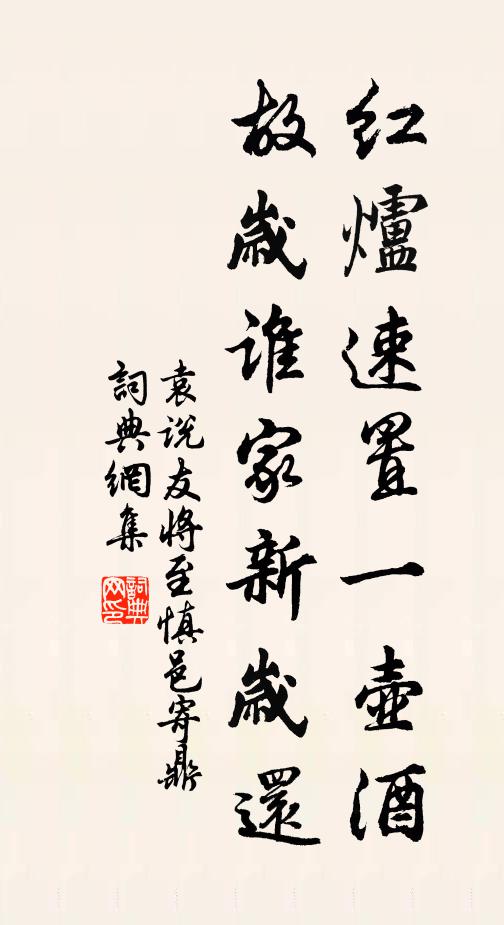 紅爐速置一壺酒
故歲誰家新歲還
袁说友将至慎邑寄鼎
詞典網集
詞典網印